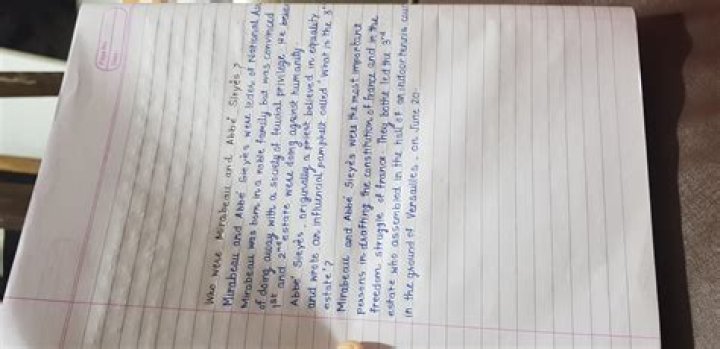 Page No.
Date
Who were Mirabeau and Abbé Sieyès?
Mirabeau and Abbé Sieyès were leders of National
Mirabeau was born in a noble family but was convinced
of doing away with a society of feucial privilege. He
1st and 2nd estate were doing against humanity
Abbé Sieyès, originally a priest believed in equality
and wrote an influencial pamphlet called 'What is the 3rd
estate'?
Mirabeau and Abbé Sieyès were the most important
persons in drafting the constitution of france and in the
freedom struggle of france. They bothe led the 3rd
estate who assembled in the hall of an indoor tennis
in the ground of Versailles, on June 20.